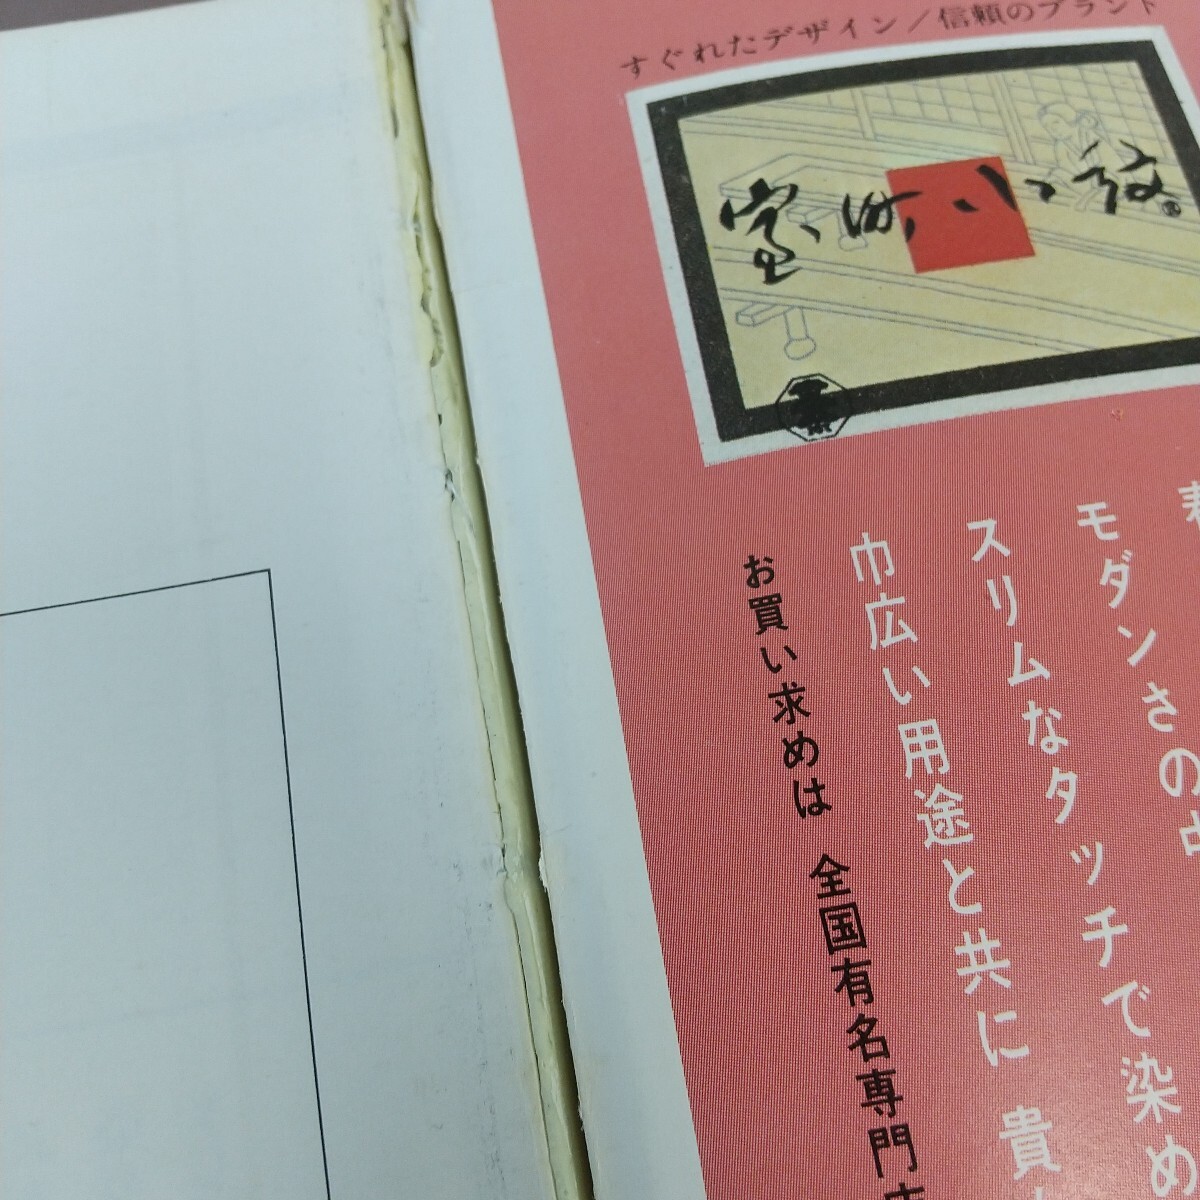 すぐれたデザイン／信頼のブランド
室町小紋®
モダンさの
スリムなタッチで染め
巾広い用途と共に 貴
お買い求めは 全国有名専門店